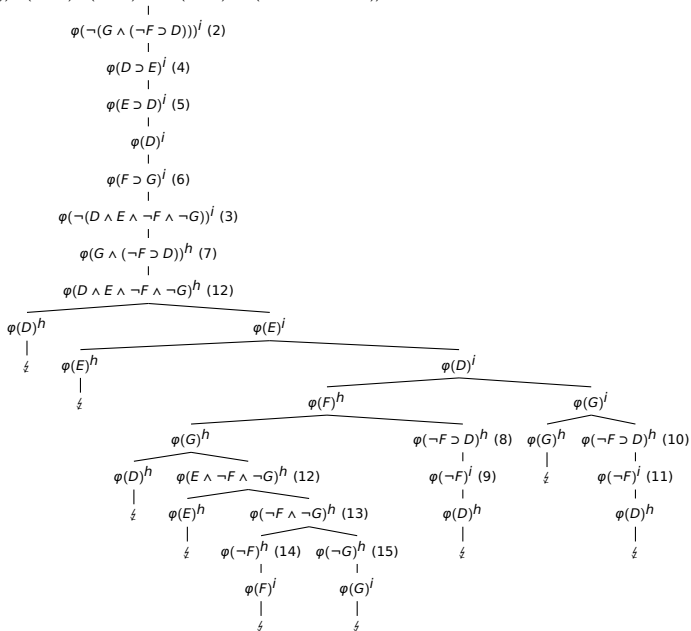 φ(¬(G ∧ (¬F ⊃ D)))ⁱ (2)
φ(D ⊃ E)ⁱ (4)
φ(E ⊃ D)ⁱ (5)
φ(D)ⁱ
φ(F ⊃ G)ⁱ (6)
φ(¬(D ∧ E ∧ ¬F ∧ ¬G))ⁱ (3)
φ(G ∧ (¬F ⊃ D))ʰ (7)
φ(D ∧ E ∧ ¬F ∧ ¬G)ʰ (12)
φ(D)ʰ φ(E)ⁱ
↯ φ(E)ʰ φ(D)ⁱ
↯ φ(F)ʰ φ(G)ⁱ
φ(G)ʰ φ(¬F ⊃ D)ʰ (8) φ(G)ʰ φ(¬F ⊃ D)ʰ (10)
φ(D)ʰ φ(E ∧ ¬F ∧ ¬G)ʰ (12) φ(¬F)ⁱ (9) ↯ φ(¬F)ⁱ (11)
↯ φ(E)ʰ φ(¬F ∧ ¬G)ʰ (13) φ(D)ʰ φ(D)ʰ
↯ φ(¬F)ʰ (14) φ(¬G)ʰ (15) ↯ ↯
φ(F)ⁱ φ(G)ⁱ
↯ ↯